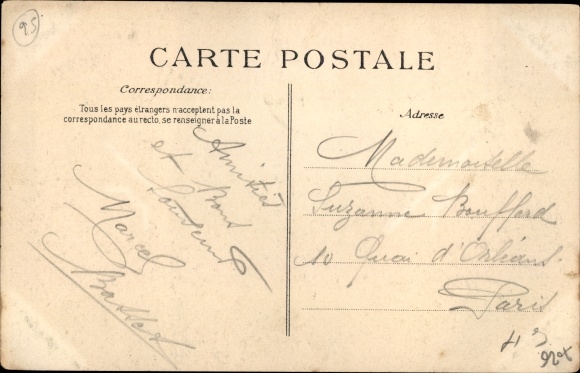 95
CARTE POSTALE
Correspondance:
Tous les pays étrangers n'acceptent pas la
correspondance au recto, se renseigner à la Poste
Adresse
Amitiés
et Bons
Souvenirs
Marcel
Mademoiselle
Suzanne Bouffard
10 Quai d'Orléans
Paris